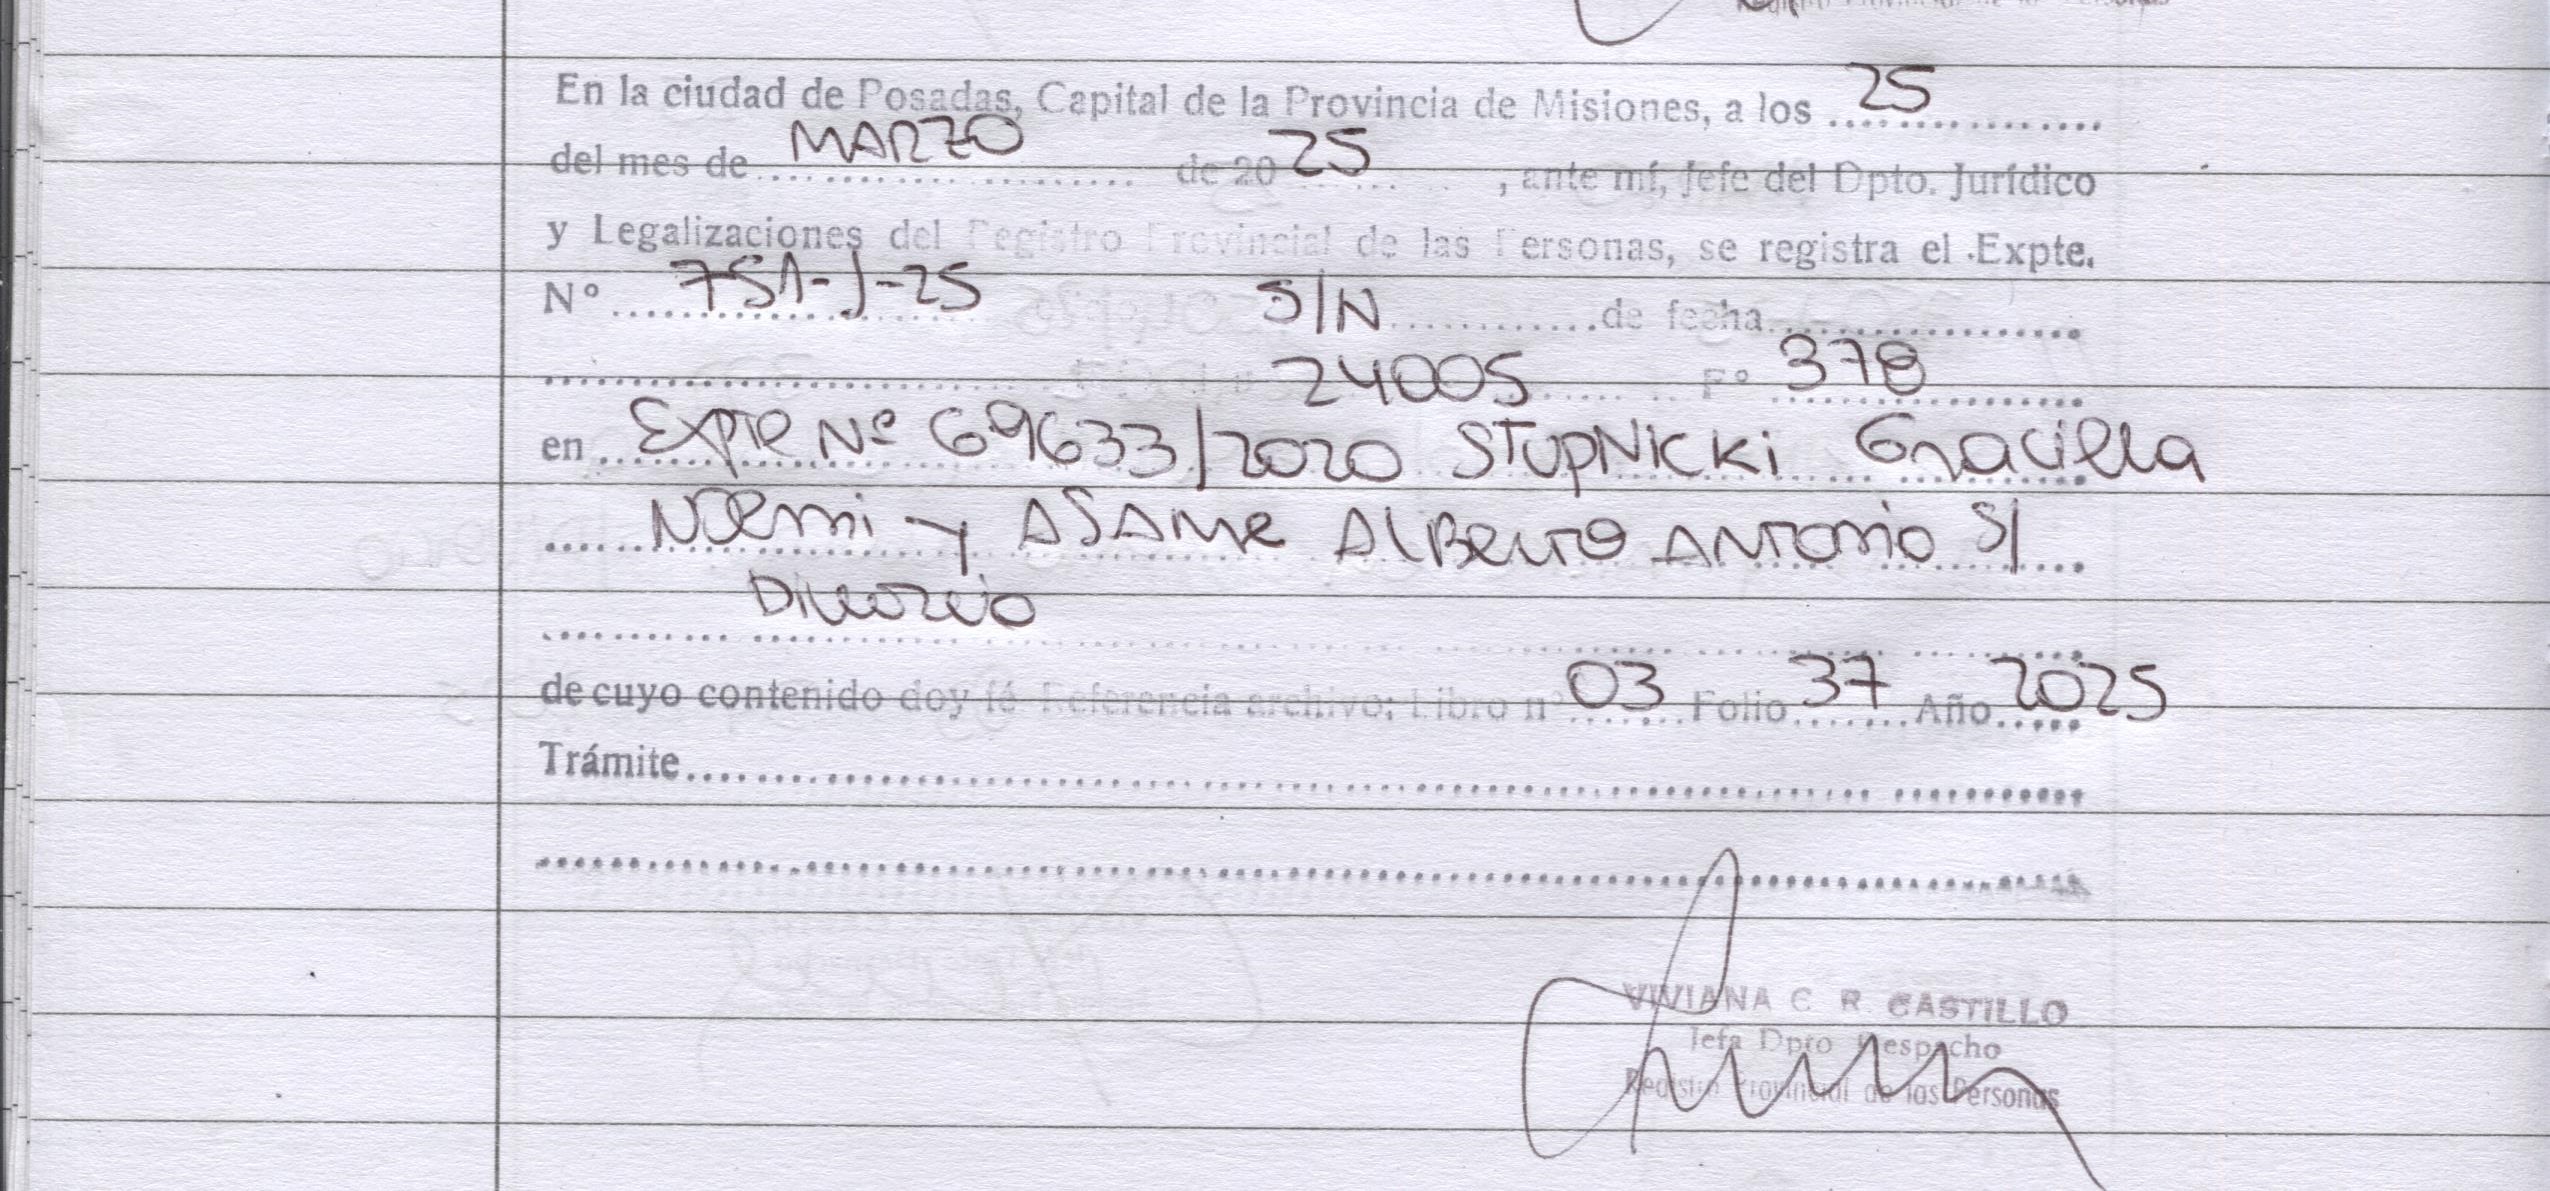 Registro Provincial de las Personas
En la ciudad de Posadas, Capital de la Provincia de Misiones, a los 25
del mes de MARZO de 20 25, ante mí, Jefe del Dpto. Jurídico
y Legalizaciones del Registro Provincial de las Personas, se registra el Expte.
N° 751-J-25 S/N de fecha
24005 F° 378
en Expte Nº 69633/2020 STUPNICKI Gracilla
Noemi y ASAME Alberto Antonio S/
Divorcio
de cuyo contenido doy fé Referencia archivo: Libro nº 03 Folio 37 Año 2025
Trámite
VIVIANA C R CASTILLO
Jefa Dpto Despacho
Registro Provincial de las Personas